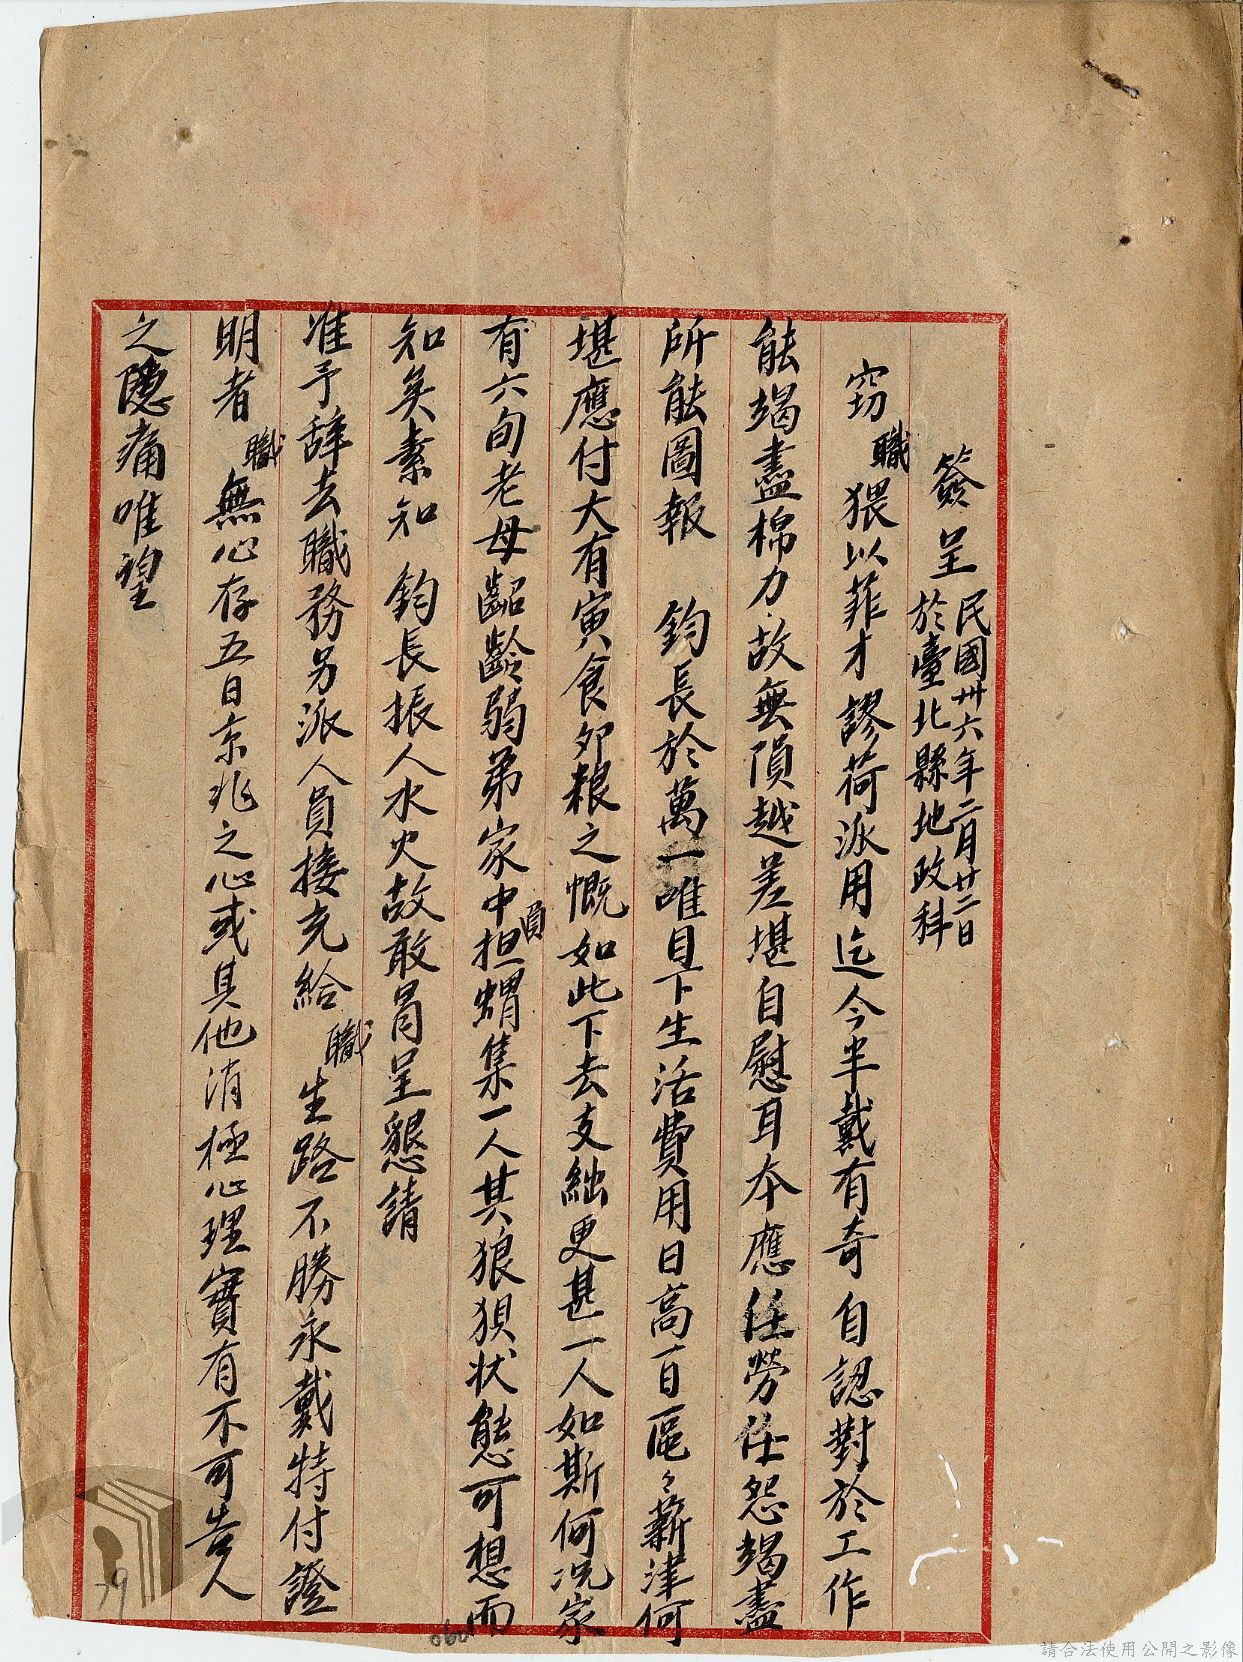 簽呈 民國卅六年二月廿二日
於臺北縣地政科
窃職猥以菲才謬荷派用迄今半載有奇自認對於工作
能竭盡棉力故無隕越差堪自慰耳本應任勞任怨竭盡
所能圖報 鈞長於萬一唯目下生活費用日高一日區々薪津何
堪應付大有寅食卯粮之慨如此下去支絀更甚一人如斯何況家
有六旬老母齠齡弱弟家中担負蝟集一人其狼狽狀態可想而
知矣素知 鈞長振人水火故敢冐呈懇請
准予辞去職務另派人員接充給職生路不勝永戴特付證
明者職無心存五日京兆之心或其他消極心理實有不可告人
之隱痛唯望
060
79
請合法使用公開之影像